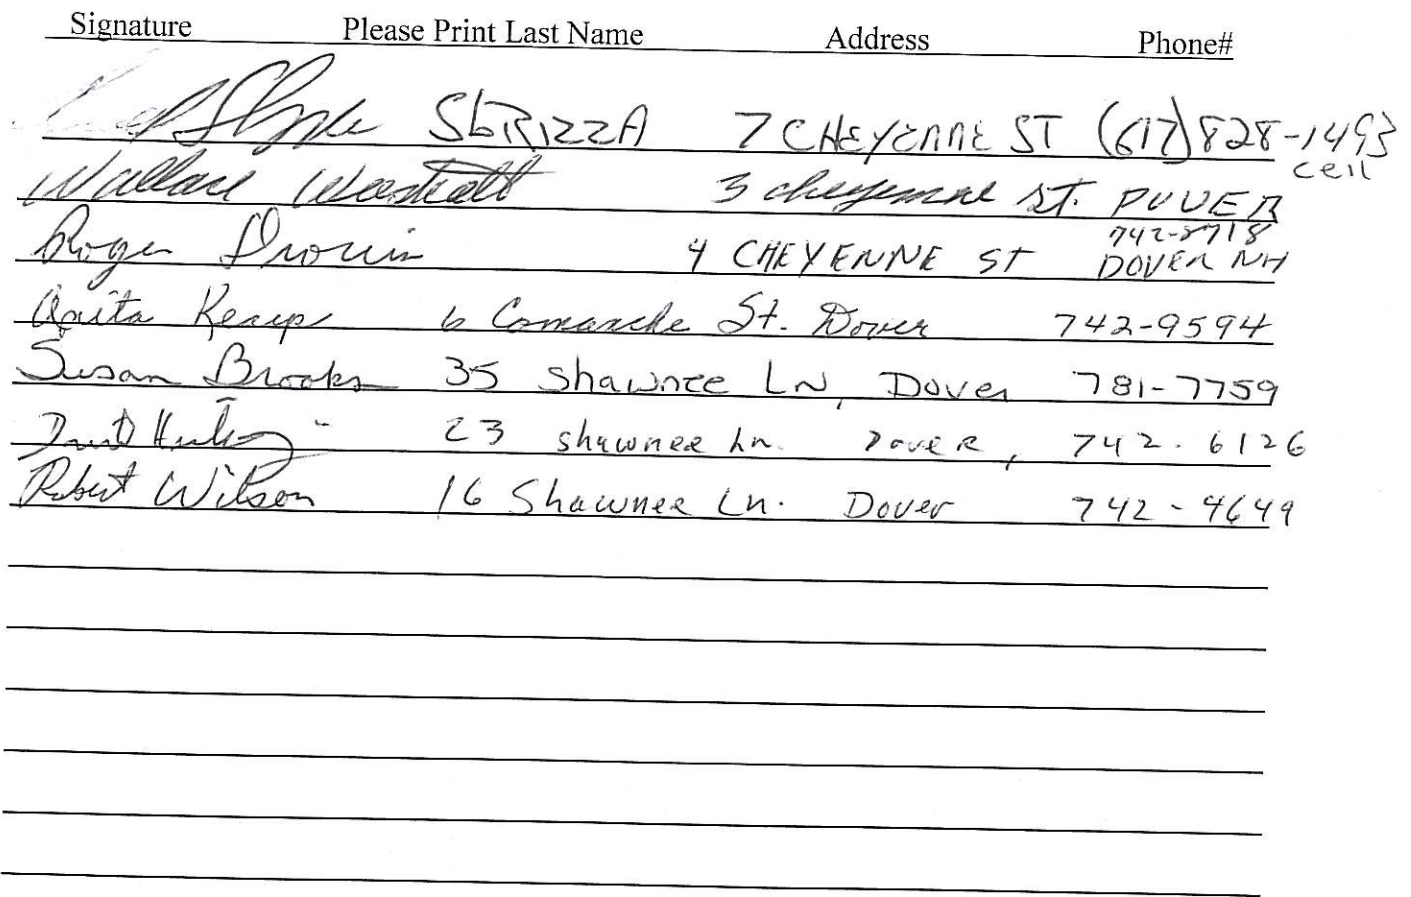 Signature Please Print Last Name Address Phone#
SbRIZZA 7 CHEYENNE ST (617) 828-1493
cell
Wallace 3 cheyenne St. DOVER
742-8718
Roger Drouin 4 CHEYENNE ST DOVER NH
Anita Kemp 6 Comanche St. Dover 742-9594
Susan Brooks 35 Shawnee LN, Dover 781-7759
23 Shawnee Ln. Dover, 742-6126
Robert Wilson 16 Shawnee Ln. Dover 742-4649